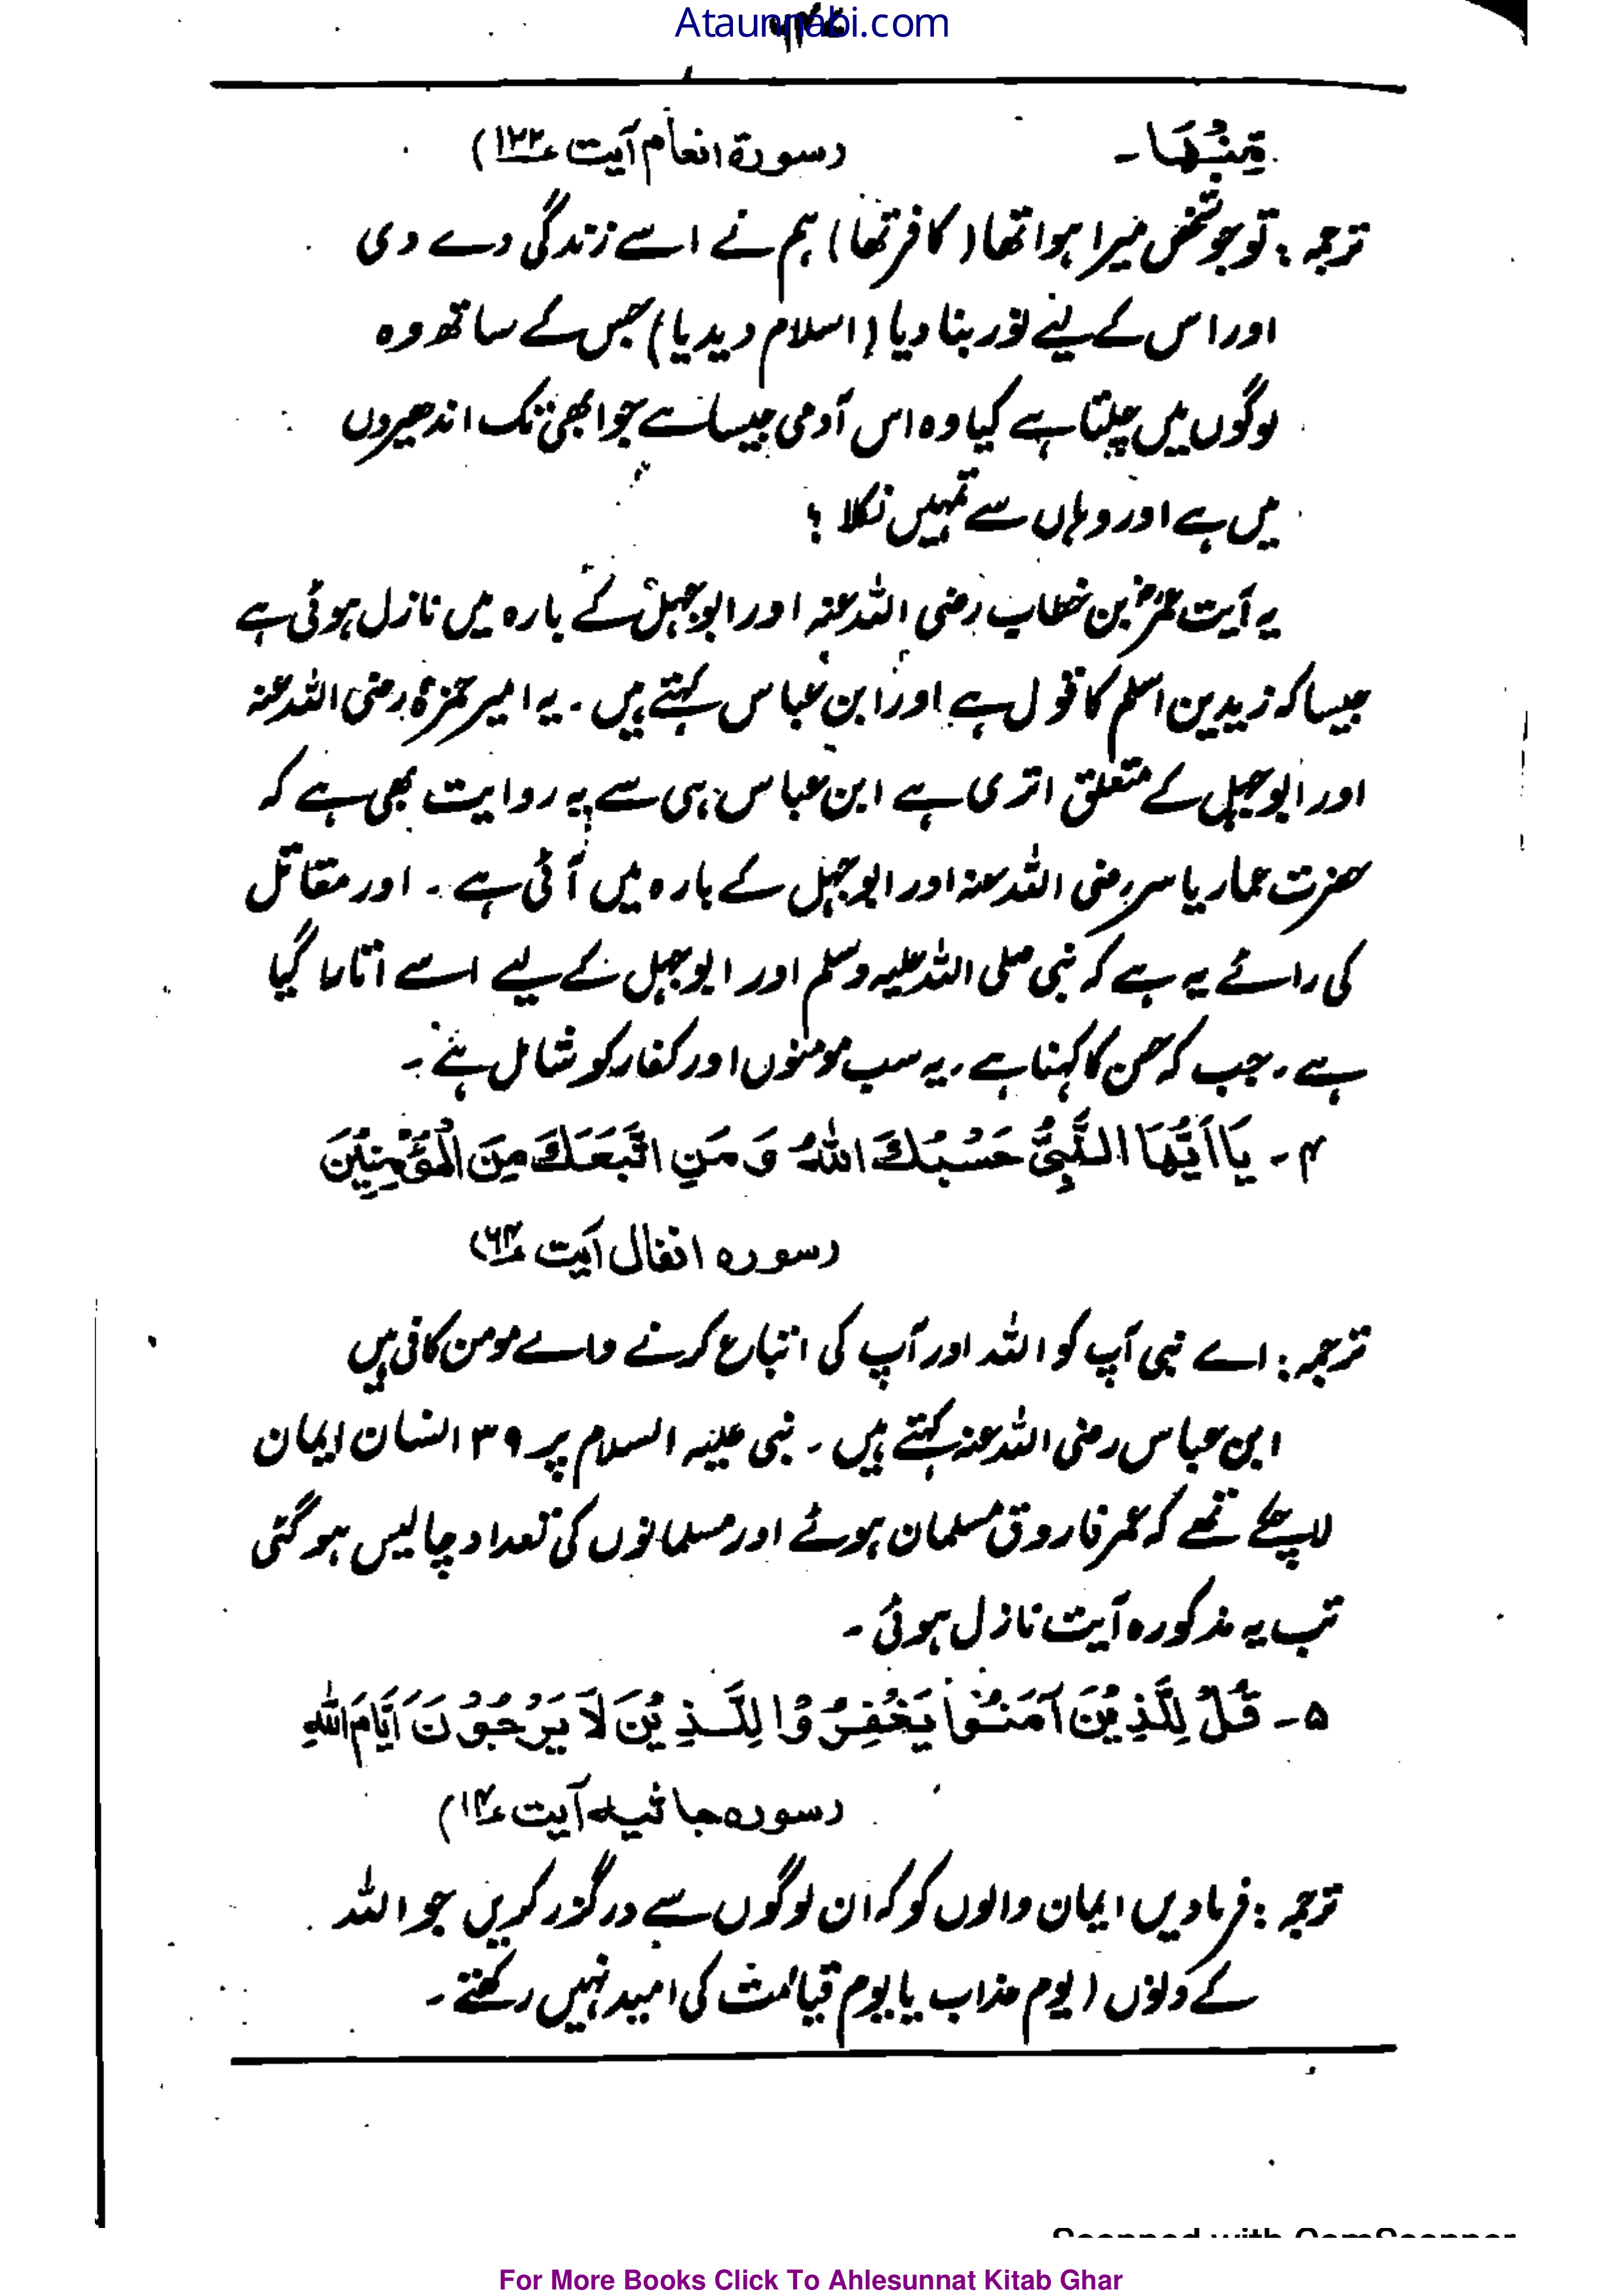 Ataunnabi.com
مِّنْهَا۔ (سورۃ انعام آیت ۱۲۲)
ترجمہ: تو جو شخص میرا ہوا تھا (کافر تھا) ہم نے اسے زندگی دے دی
اور اس کے لیے نور بنا دیا (اسلام دیدیا) جس کے ساتھ وہ
لوگوں میں چلتا ہے کیا وہ اس آدمی جیسا ہے جو ابھی تک اندھیروں
میں ہے اور وہاں سے نہیں نکلا ؟
یہ آیت عمرؓ بن خطاب رضی اللہ عنہ اور ابوجہل کے بارہ میں نازل ہوئی ہے
جیسا کہ زید بن اسلم کا قول ہے اور ابن عباس کہتے ہیں۔ یہ امیر حمزہ رضی اللہ عنہ
اور ابوجہل کے متعلق اتری ہے ابن عباس ہی سے یہ روایت بھی ہے کہ
حضرت عمار یاسر رضی اللہ عنہ اور ابوجہل کے بارہ میں آئی ہے۔ اور مقاتل
کی رائے یہ ہے کہ نبی صلی اللہ علیہ وسلم اور ابوجہل کے لیے اسے اتارا گیا
ہے۔ جب کہ حسن کا کہنا ہے۔ یہ سب مومنوں اور کفار کو شامل ہے۔
۴۔ يَا اَيُّهَا النَّبِيُّ حَسْبُكَ اللّٰهُ وَ مَنِ اتَّبَعَكَ مِنَ الْمُؤْمِنِيْنَ
(سورہ انفال آیت ۶۴)
ترجمہ: اے نبی آپ کو اللہ اور آپ کی اتباع کرنے والے مومن کافی ہیں
ابن عباس رضی اللہ عنہ کہتے ہیں۔ نبی علیہ السلام پر ۳۹ انسان ایمان
لاچکے تھے کہ عمر فاروق مسلمان ہوئے اور مسلمانوں کی تعداد چالیس ہو گئی
تب یہ مذکورہ آیت نازل ہوئی۔
۵۔ قُلْ لِلَّذِيْنَ آمَنُوْا يَغْفِرُوْا لِلَّذِيْنَ لَا يَرْجُوْنَ اَيَّامَ اللّٰهِ
(سورہ جاثیہ آیت ۱۴)
ترجمہ: فرما دیں ایمان والوں کو کہ ان لوگوں سے درگزر کریں جو اللہ
کے دنوں (یوم عذاب یا یوم قیامت کی امید نہیں رکھتے۔
Scanned with CamScanner
For More Books Click To Ahlesunnat Kitab Ghar